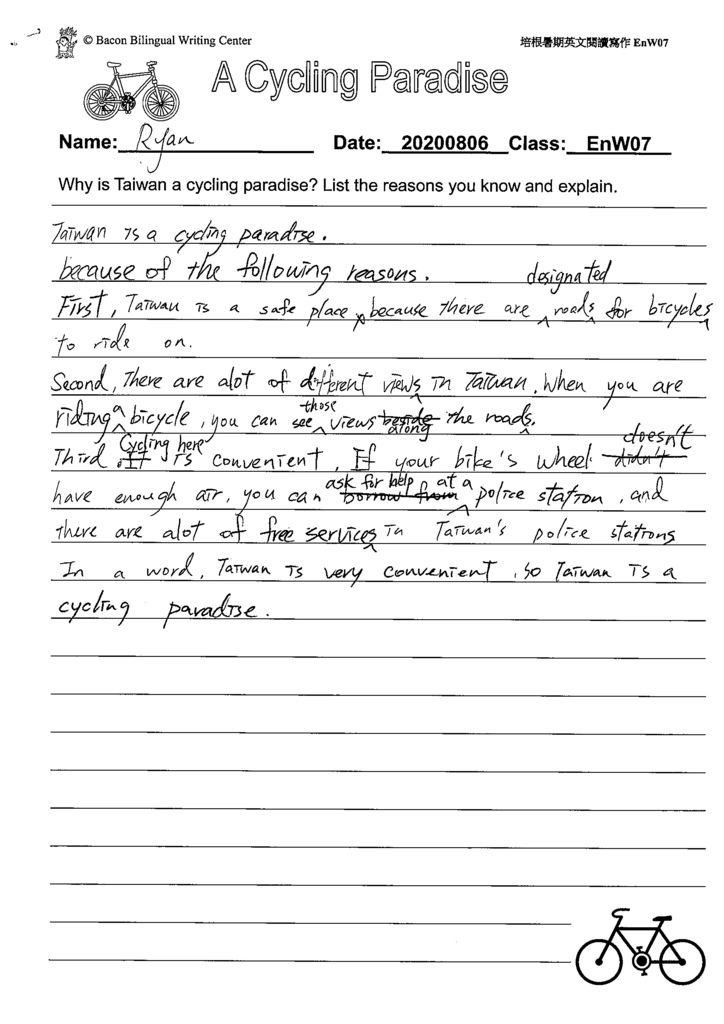 © Bacon Bilingual Writing Center
培根暑期英文閱讀寫作 EnW07
A Cycling Paradise
Name: Ryan Date: 20200806 Class: EnW07
Why is Taiwan a cycling paradise? List the reasons you know and explain.
Taiwan is a cycling paradise.
because of the following reasons.
designated
First, Taiwan is a safe place, because there are roads for bicycles
to ride on.
Second, There are alot of different views in Taiwan. When you are
those
riding a bicycle, you can see views beside the roads.
along
Cycling here doesn't
Third. It is convenient, If your bike's wheel didn't
ask for help at a
have enough air, you can borrow from police station, and
there are alot of free services in Taiwan's police stations
In a word, Taiwan is very convenient, so Taiwan is a
cycling paradise.